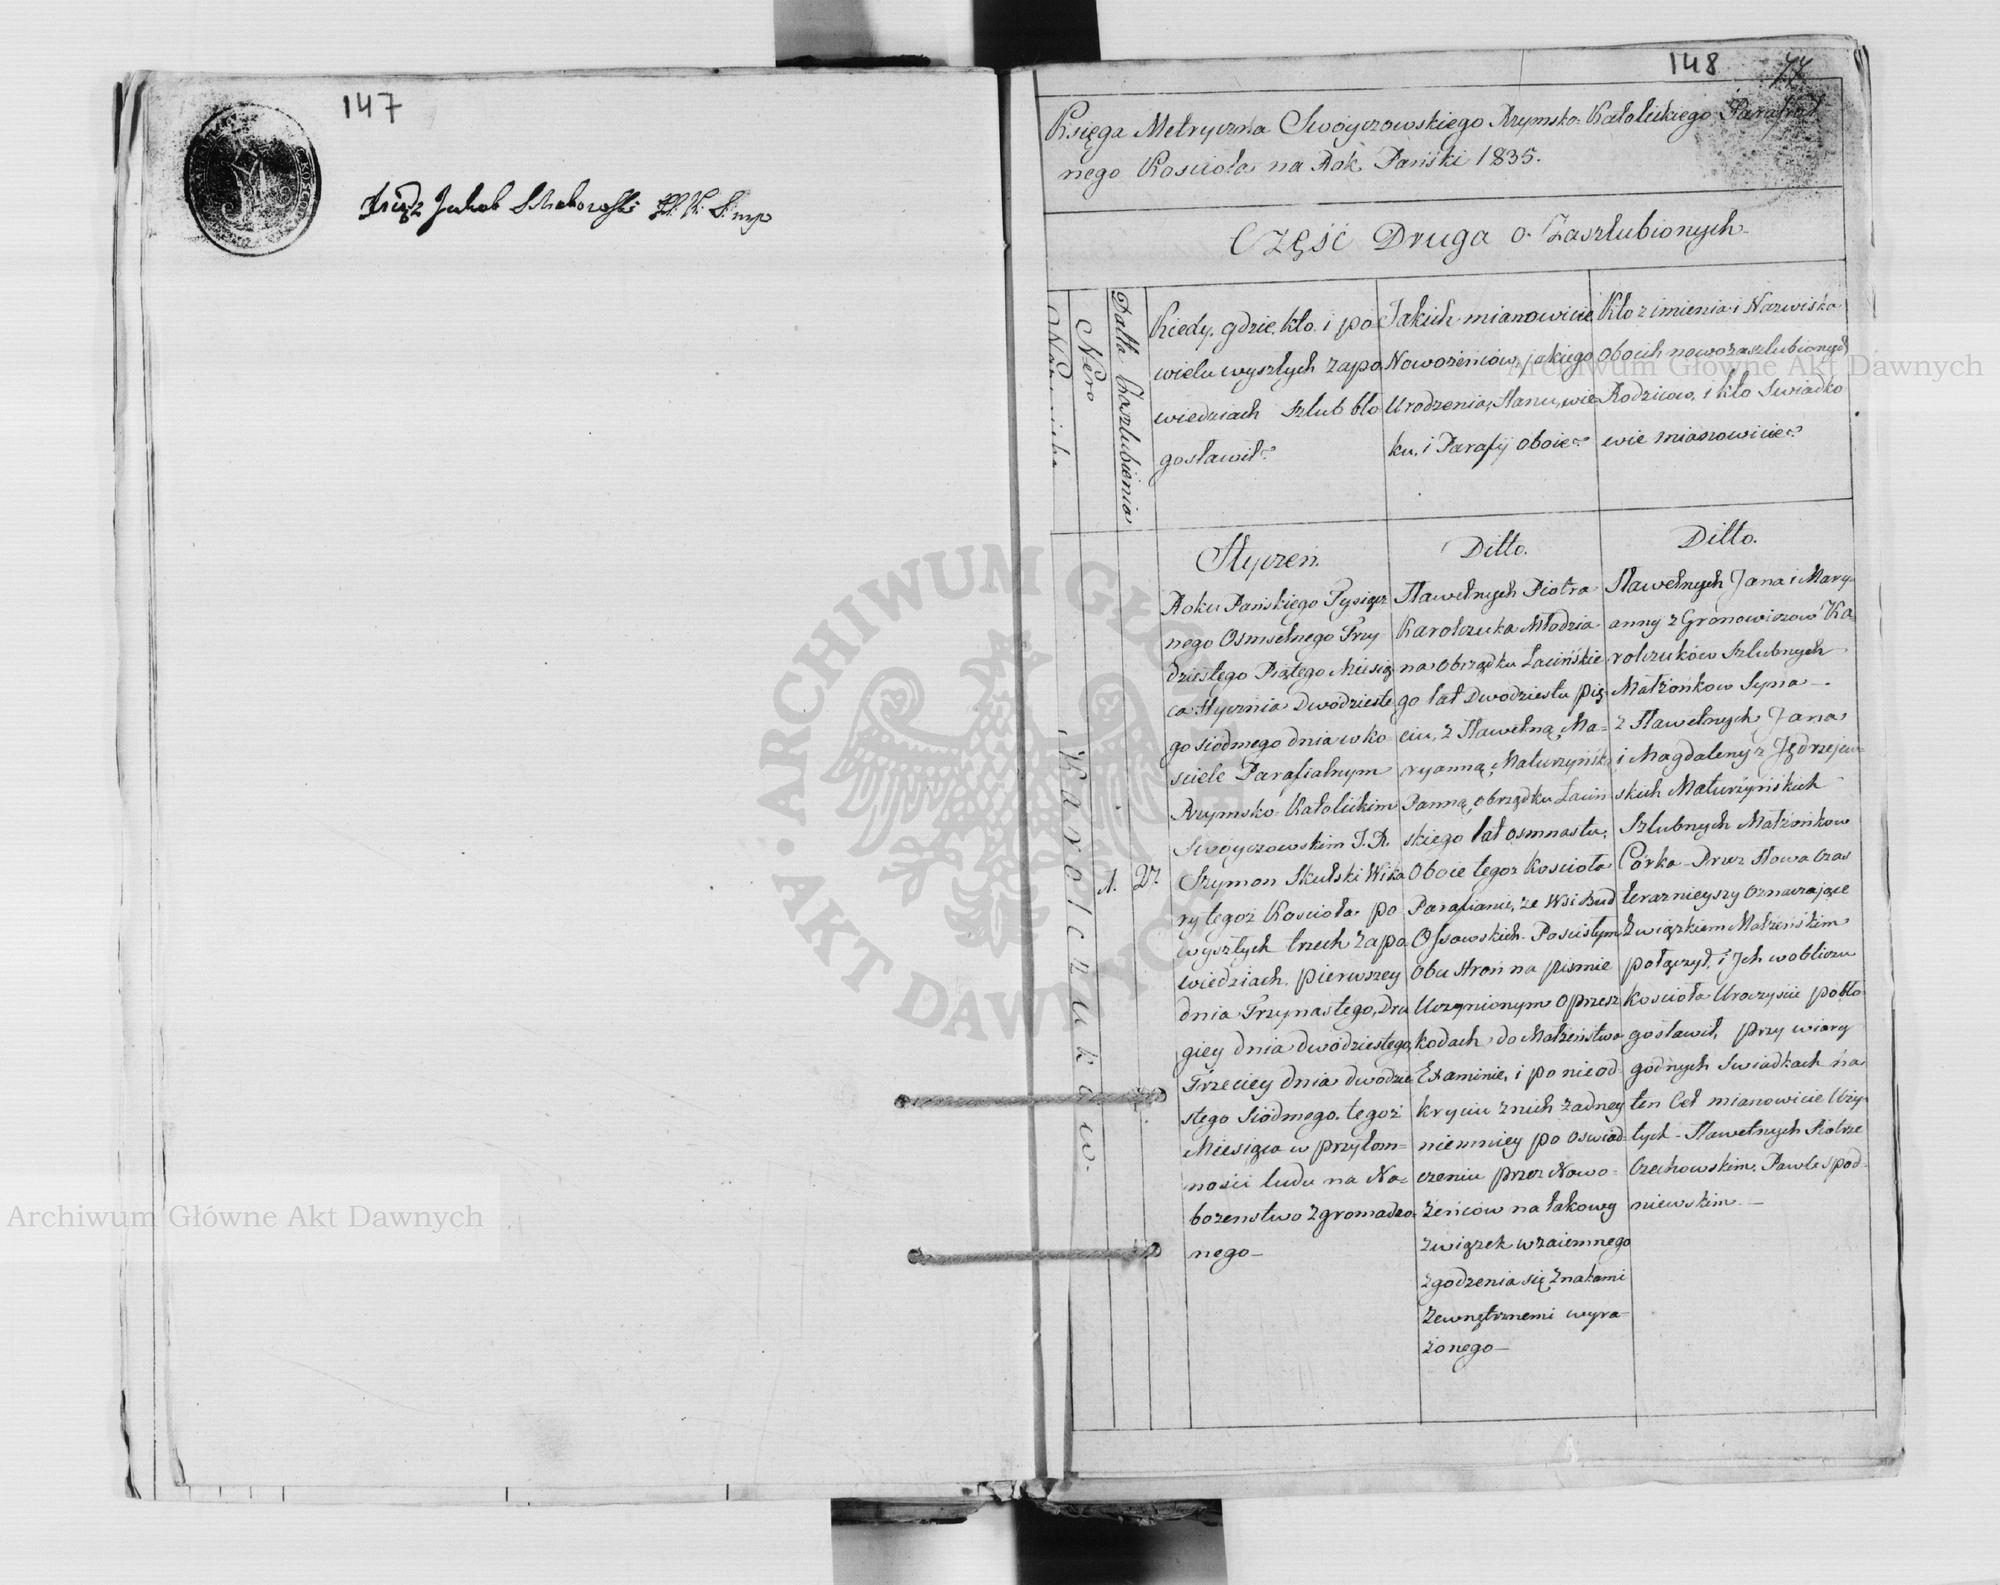 147
148
77
Księga Metryczna Swoyczowskiego Rzymsko-Katolickiego Parafial
nego Kościoła na Rok Pański 1835.
Część Druga o Zaszlubionych
Nazwiska
Nro
Datta Zaszlubienia
Kiedy, gdzie, kto, i po
wielu wyszłych zapo
wiedziach szlub bło
gosławił?
Jakich mianowicie
Nowożeńców, jakiego
Urodzenia, Stanu, wie
ku, i Parafij oboie?
Kto z imienia i Nazwiska
obojch nowozaszlubionych
Rodziców, i kto Swiadko
wie mianowicie?
Karolczuków-
1.
27.
Styczeń.
Roku Pańskiego Tysiącz
nego Osmsetnego Trzy
dziestego Piątego Miesią
ca Stycznia Dwódzieste
go siódmego dnia w ko
ściele Parafialnym
Rzymsko-Katolickim
Swoyczowskim J.X.
Szymon Skulski Wika
ry tegoż Kościoła po
wyszłych trzech zapo
wiedziach, pierwszey
dnia Trzynastego, Dru
giey dnia dwódziestego,
Trzeciey dnia dwódzie
stego Siódmego tegoż
Miesiąca w przytom=
ności ludu na Na=
bożenstwo zgromadzo
nego-
Ditto.
Sławetnych Piotra
Karolczuka Młodzia
na Obrządku Łacińskie
go lat Dwodziestu pię
ciu, z Sławetną Ma-
ryanną Maturzyńsk
Panną, obrządku Łaciń
skiego lat osmnastu,
Oboie tegoż Kościoła
Parafianie, ze Wsi Bud
Ossowskich. Po scisłym
Obu stron na pismie
Uczynionym o przesz
kodach do Małżeństwa
Examinie, i po nieod
kryciu z nich żadney
niemniey po oswiad
czeniu przez Nowo=
żeńców na takowy
związek wzaiemnego
zgodzenia się znakami
zewnętrznemi wyra
żonego-
Ditto.
Sławetnych Jana i Mary-
anny z Gronowiczow Ka-
rolczuków Szlubnych
Małżonkow Syna-
z Sławetnych Jana
i Magdaleny z Jędrzejew-
skich Maturzyńskich
Szlubnych Małżonkow
Córka- Przez słowa czas
teraznieyszy oznaczające
Związkiem Małżeńskim
połączył, i Jch w obliczu
kościoła Uroczyscie pobło
gosławił, przy wiary
godnych Swiadkach na
ten Cel mianowicie Uży
tych- Sławetnych Piotrze
Czechowskim, Pawle Spod-
niewskim-
Archiwum Główne Akt Dawnych
Archiwum Główne Akt Dawnych
ARCHIWUM GŁÓWNE AKT DAWNYCH